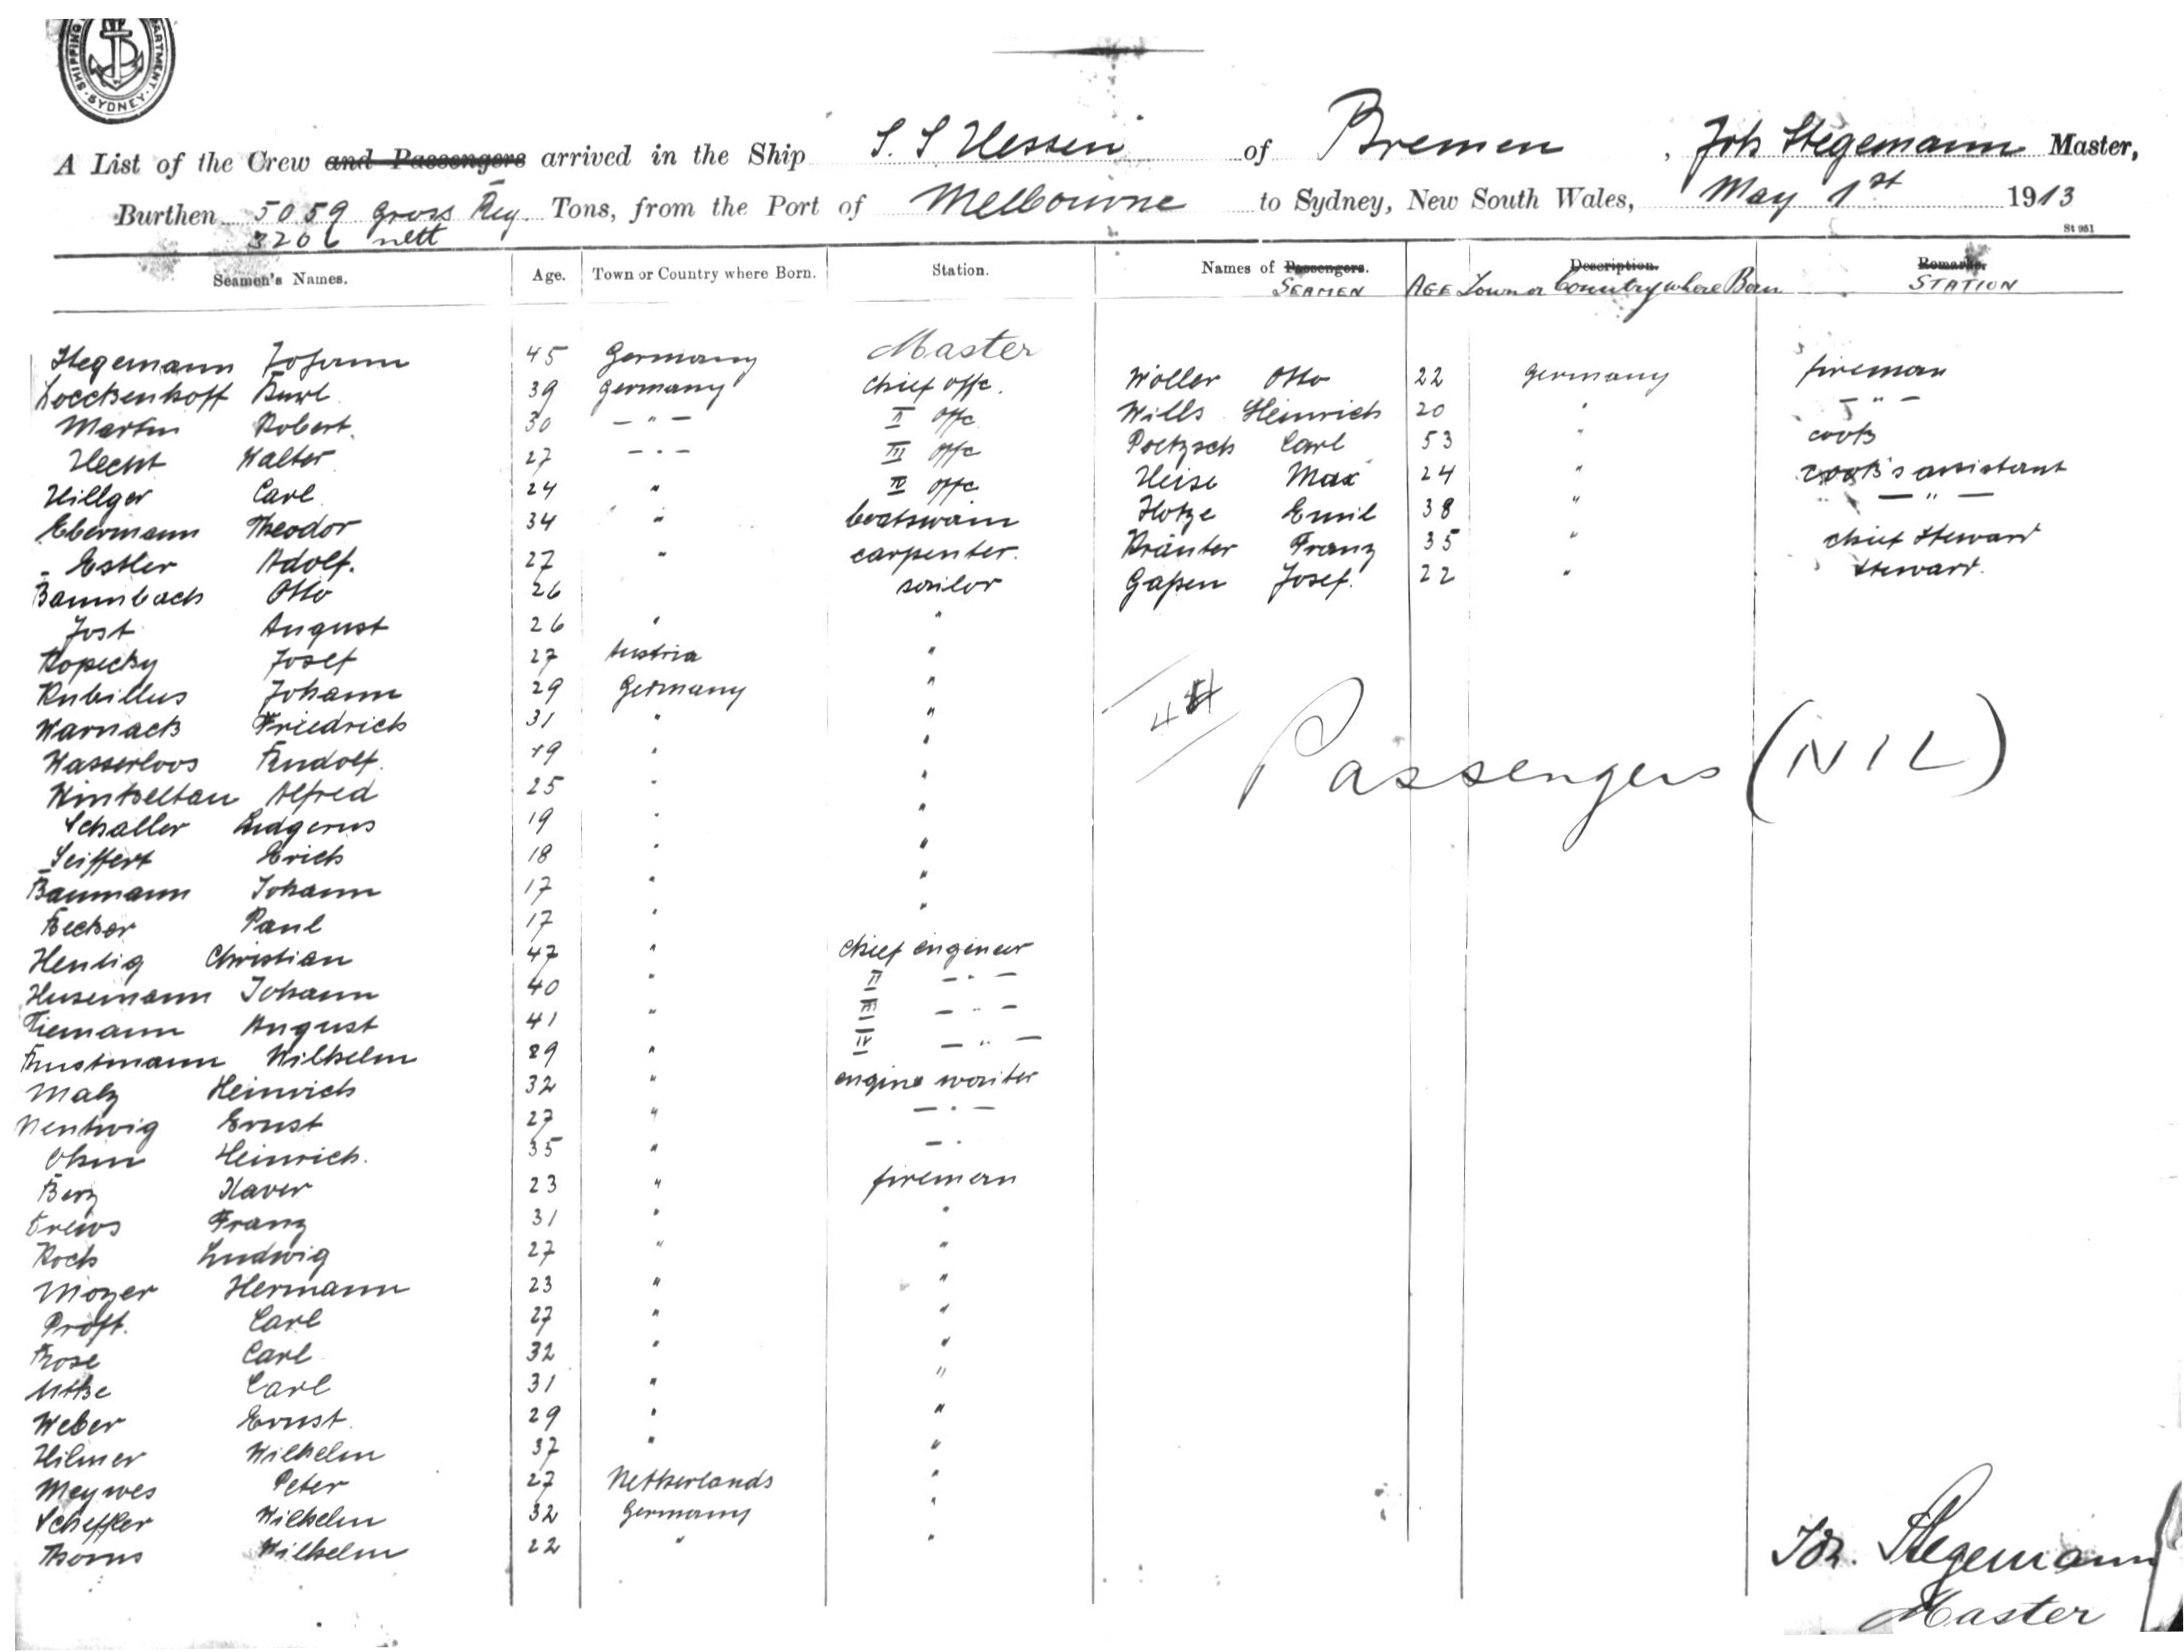 SHIPPING DEPARTMENT SYDNEY
A List of the Crew and Passengers arrived in the Ship S.S Hessen of Bremen, Joh Stegemann Master,
Burthen 5059 Gross Reg. Tons, from the Port of Melbourne to Sydney, New South Wales, May 1st 1913
3206 nett
St 951
Seamen's Names. Age. Town or Country where Born. Station. Names of Passengers. Description. Remarks.
SEAMEN AGE Town or Country where Born STATION
Stegemann Johann 45 Germany Master
Loeckenhoff Kurl 39 Germany chief offc. Woller Otto 22 Germany fireman
Martin Robert 30 — " — II offc Wills Heinrich 20 " — " —
Hecht Walter 27 — " — III offc Poetzsch Carl 53 " cook
Hillger Carl 24 " IV offc Heise Max 24 " cook's assistant
Ebermann Theodor 34 " boatswain Hotze Emil 38 " — " —
Estler Adolf. 27 " carpenter. Kräuter Franz 35 " chief Steward
Baumbach Otto 26 sailor Gapen Josef. 22 " Steward.
Jost August 26 " "
Kopecky Josef 27 Austria "
Kubillus Johann 29 Germany "
Warnack Friedrich 31 " "
Wasserloos Rudolf. 19 " "
Winkeltau Alfred 25 " "
Schaller Ludgerus 19 " "
Seiffert Erich 18 " "
Baumann Johann 17 " "
Becker Paul 17 " "
Hentig Christian 47 " chief engineer
Husemann Johann 40 " II — " —
Tiemann August 41 " III — " —
Rustmann Wilhelm 29 " IV — " —
Malz Heinrich 32 " engine waiter
Nentwig Ernst 27 " — " —
Ohm Heinrich. 35 " — "
Berz Xaver 23 " fireman
Drews Franz 31 " "
Koch Ludwig 27 " "
Mozer Hermann 23 " "
Proft. Carl 27 " "
Rose Carl 32 " "
Utke Carl 31 " "
Weber Ernst 29 " "
Hilmer Wilhelm 37 " "
Meywes Peter 27 Netherlands "
Scheffler Wilhelm 32 Germany "
Thoms Wilhelm 22 " "
44
Passengers (NIL)
Joh. Stegemann
Master